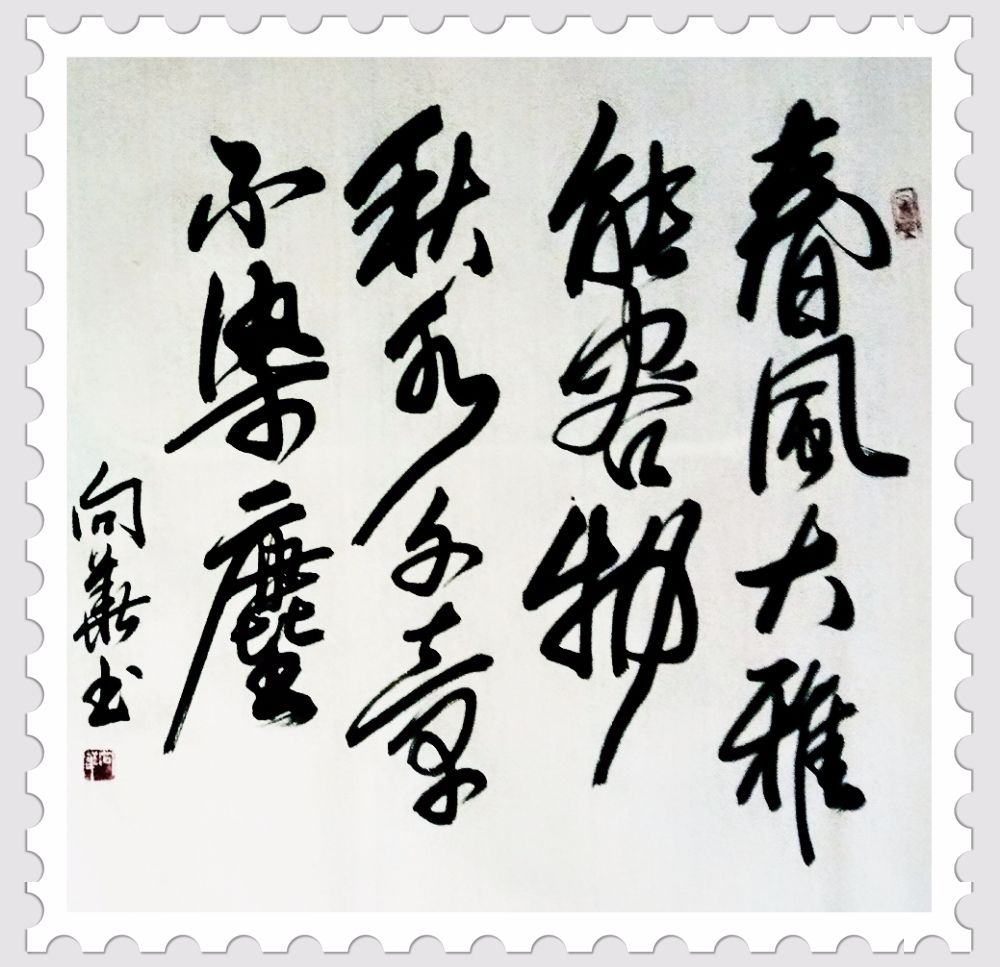 春風大雅
能容物
秋水文章
不染塵
向華书